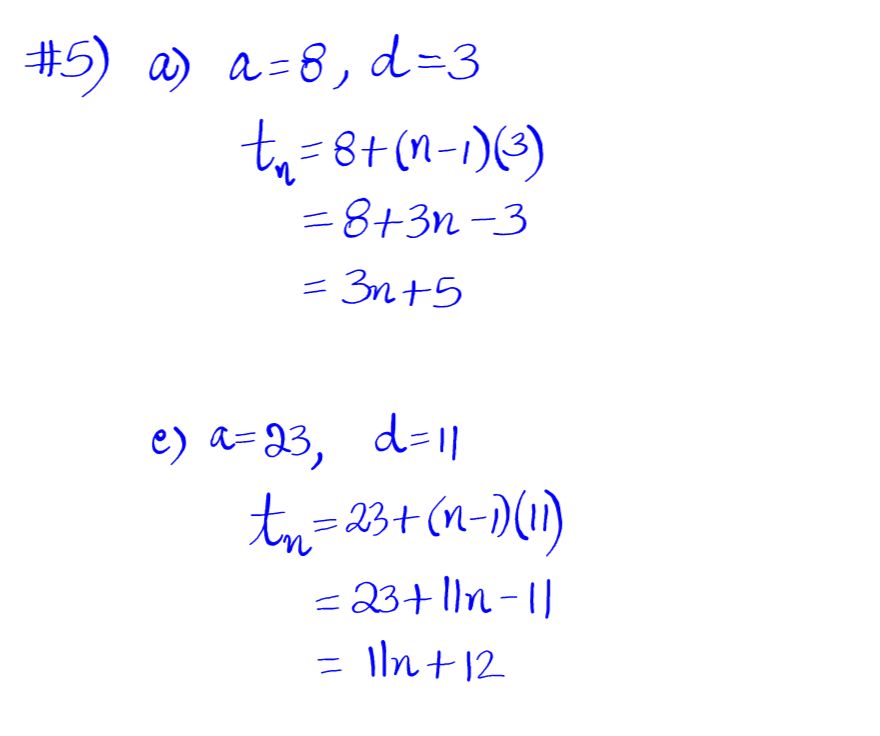 #5) a) a=8, d=3
tₙ=8+(n-1)(3)
=8+3n-3
=3n+5
e) a=23, d=11
tₙ=23+(n-1)(11)
=23+11n-11
=11n+12